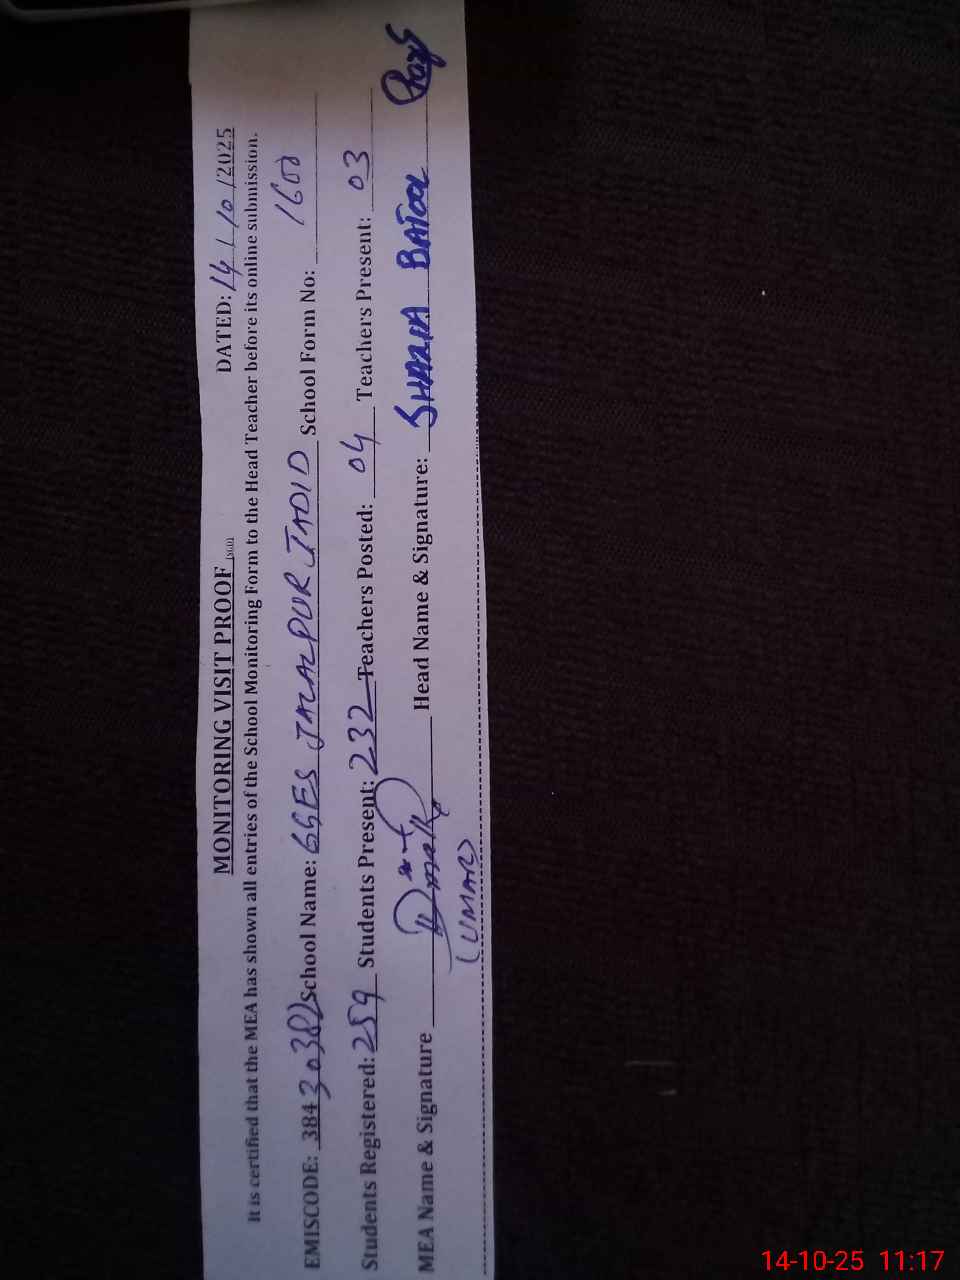 MONITORING VISIT PROOF (SGD) DATED: 14/10/2025
It is certified that the MEA has shown all entries of the School Monitoring Form to the Head Teacher before its online submission.
EMISCODE: 38430382 School Name: GGES JALALPUR JADID School Form No: 1600
Students Registered: 259 Students Present: 232 Teachers Posted: 04 Teachers Present: 03
MEA Name & Signature Head Name & Signature: SHAZIA BATOOL
(UMAR)
14-10-25 11:17